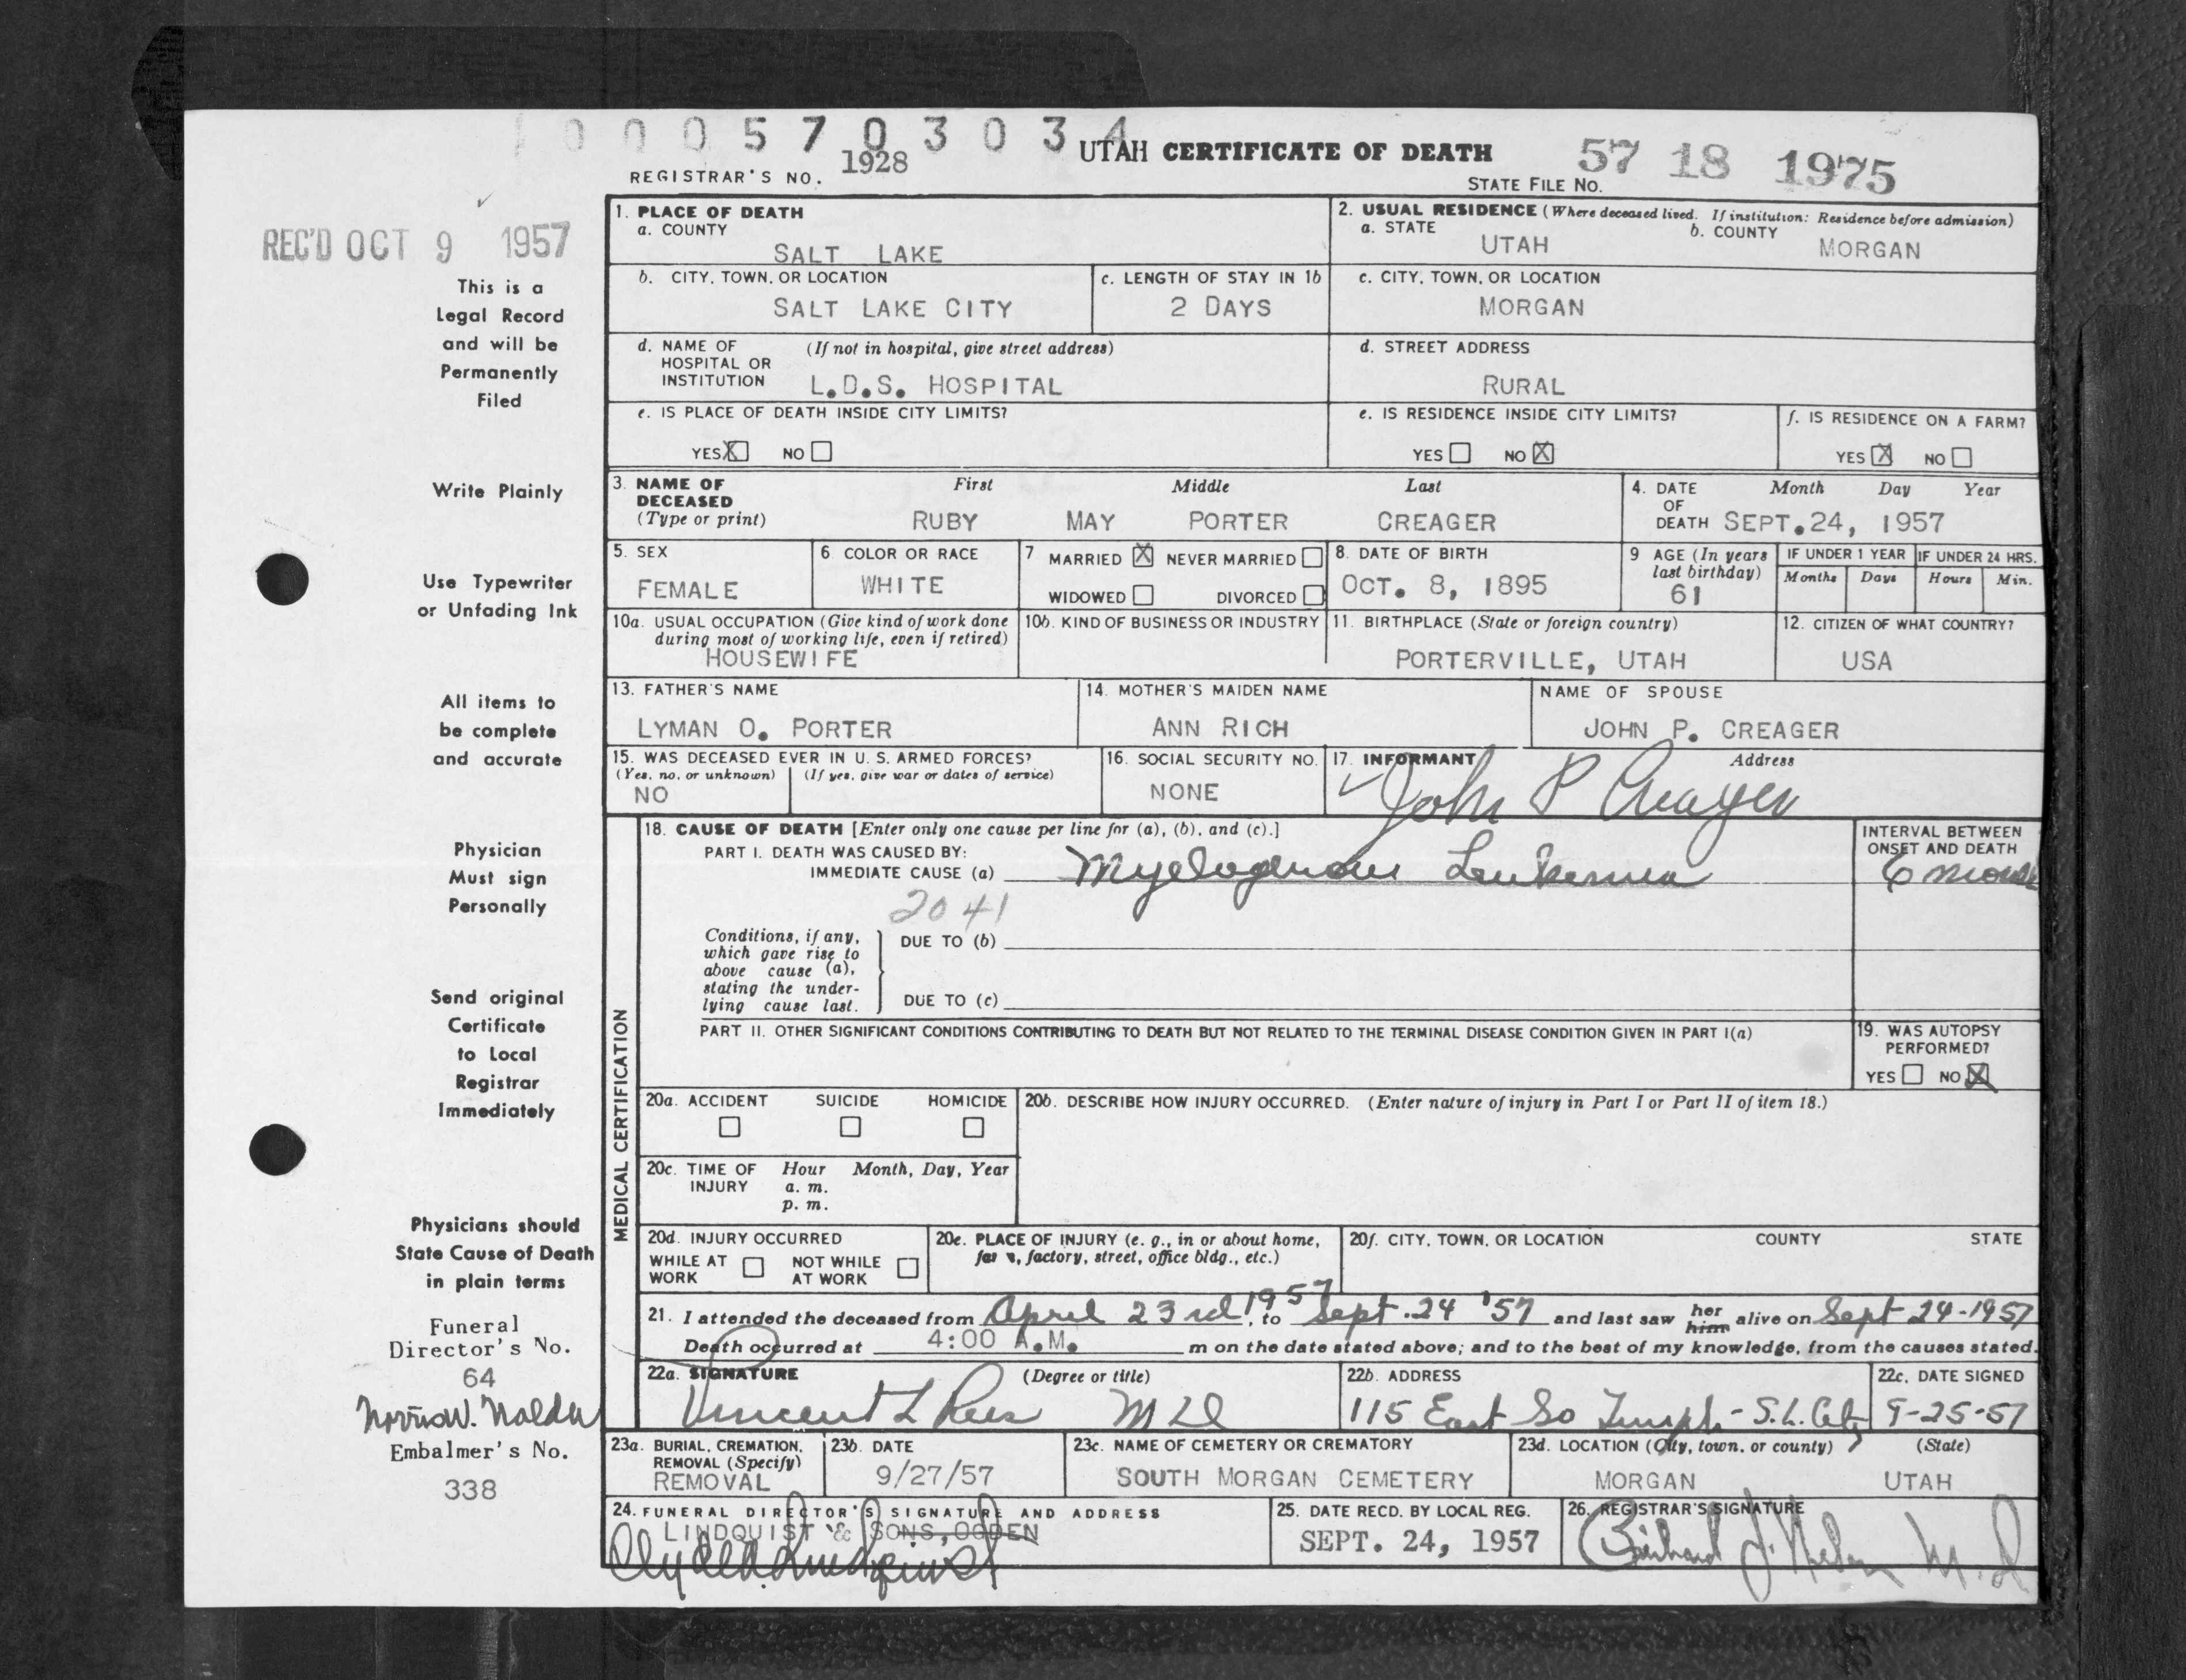 0 0 0 5 7 0 3 0 3 4
REGISTRAR'S NO. 1928
UTAH CERTIFICATE OF DEATH
STATE FILE NO. 57 18 1975
REC'D OCT 9 1957
This is a
Legal Record
and will be
Permanently
Filed
Write Plainly
Use Typewriter
or Unfading Ink
All items to
be complete
and accurate
Physician
Must sign
Personally
Send original
Certificate
to Local
Registrar
Immediately
Physicians should
State Cause of Death
in plain terms
Funeral
Director's No.
64
Embalmer's No.
338
1. PLACE OF DEATH
a. COUNTY
SALT LAKE
2. USUAL RESIDENCE (Where deceased lived. If institution: Residence before admission)
a. STATE b. COUNTY
UTAH MORGAN
b. CITY, TOWN, OR LOCATION
SALT LAKE CITY
c. LENGTH OF STAY IN 1b
2 DAYS
c. CITY, TOWN, OR LOCATION
MORGAN
d. NAME OF (If not in hospital, give street address)
HOSPITAL OR
INSTITUTION L.D.S. HOSPITAL
d. STREET ADDRESS
RURAL
e. IS PLACE OF DEATH INSIDE CITY LIMITS?
YES X NO
e. IS RESIDENCE INSIDE CITY LIMITS?
YES NO X
f. IS RESIDENCE ON A FARM?
YES X NO
3. NAME OF First Middle Last
DECEASED
(Type or print) RUBY MAY PORTER CREAGER
4. DATE Month Day Year
OF
DEATH SEPT.24, 1957
5. SEX
FEMALE
6. COLOR OR RACE
WHITE
7 MARRIED X NEVER MARRIED
WIDOWED DIVORCED
8. DATE OF BIRTH
OCT. 8, 1895
9 AGE (In years
last birthday)
61
IF UNDER 1 YEAR IF UNDER 24 HRS.
Months Days Hours Min.
10a. USUAL OCCUPATION (Give kind of work done
during most of working life, even if retired)
HOUSEWIFE
10b. KIND OF BUSINESS OR INDUSTRY
11. BIRTHPLACE (State or foreign country)
PORTERVILLE, UTAH
12. CITIZEN OF WHAT COUNTRY?
USA
13. FATHER'S NAME
LYMAN O. PORTER
14. MOTHER'S MAIDEN NAME
ANN RICH
NAME OF SPOUSE
JOHN P. CREAGER
15. WAS DECEASED EVER IN U. S. ARMED FORCES?
(Yes, no, or unknown) (If yes, give war or dates of service)
NO
16. SOCIAL SECURITY NO.
NONE
17. INFORMANT Address
John P Creager
MEDICAL CERTIFICATION
18. CAUSE OF DEATH [Enter only one cause per line for (a), (b), and (c).]
PART I. DEATH WAS CAUSED BY:
IMMEDIATE CAUSE (a) Myelogenous Leukemia
INTERVAL BETWEEN
ONSET AND DEATH
6 months
2041
Conditions, if any,
which gave rise to
above cause (a),
stating the under-
lying cause last.
DUE TO (b)
DUE TO (c)
PART II. OTHER SIGNIFICANT CONDITIONS CONTRIBUTING TO DEATH BUT NOT RELATED TO THE TERMINAL DISEASE CONDITION GIVEN IN PART I(a)
19. WAS AUTOPSY
PERFORMED?
YES NO X
20a. ACCIDENT SUICIDE HOMICIDE
20b. DESCRIBE HOW INJURY OCCURRED. (Enter nature of injury in Part I or Part II of item 18.)
20c. TIME OF Hour Month, Day, Year
INJURY a. m.
p. m.
20d. INJURY OCCURRED
WHILE AT NOT WHILE
WORK AT WORK
20e. PLACE OF INJURY (e. g., in or about home,
farm, factory, street, office bldg., etc.)
20f. CITY, TOWN, OR LOCATION COUNTY STATE
21. I attended the deceased from April 23rd 1957, to Sept. 24 '57 and last saw her him alive on Sept 24-1957
Death occurred at 4:00 A.M. m on the date stated above; and to the best of my knowledge, from the causes stated.
22a. SIGNATURE (Degree or title)
Vincent L Rees MD
22b. ADDRESS
115 East So Temple - S.L. City
22c. DATE SIGNED
9-25-57
23a. BURIAL, CREMATION,
REMOVAL (Specify)
REMOVAL
23b. DATE
9/27/57
23c. NAME OF CEMETERY OR CREMATORY
SOUTH MORGAN CEMETERY
23d. LOCATION (City, town, or county) (State)
MORGAN UTAH
24. FUNERAL DIRECTOR'S SIGNATURE AND ADDRESS
LINDQUIST & SONS, OGDEN
25. DATE RECD. BY LOCAL REG.
SEPT. 24, 1957
26. REGISTRAR'S SIGNATURE
M.D